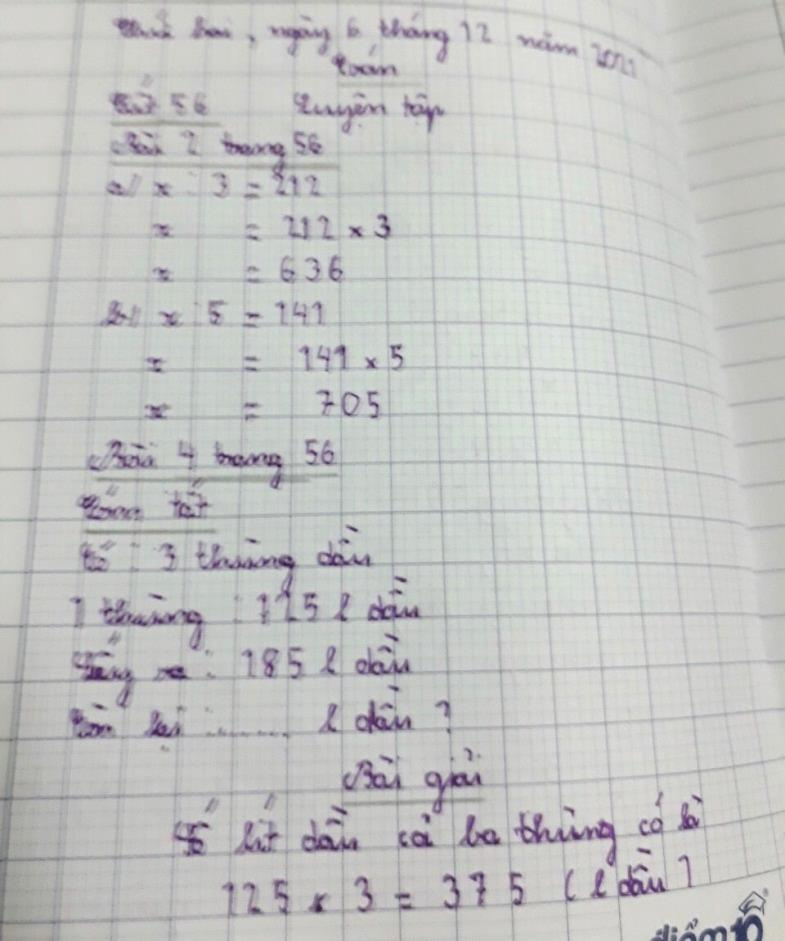 Thứ hai, ngày 6 tháng 12 năm 2021
Toán
Tiết 56 Luyện tập
Bài 2 trang 56
a/ x : 3 = 212
x = 212 × 3
x = 636
b/ x : 5 = 141
x = 141 × 5
x = 705
Bài 4 trang 56
Tóm tắt
Có : 3 thùng dầu
1 thùng : 125 l dầu
Lấy ra : 185 l dầu
Còn lại : ........ l dầu ?
Bài giải
Số lít dầu cả ba thùng có là
125 × 3 = 375 (l dầu)
điểm 10